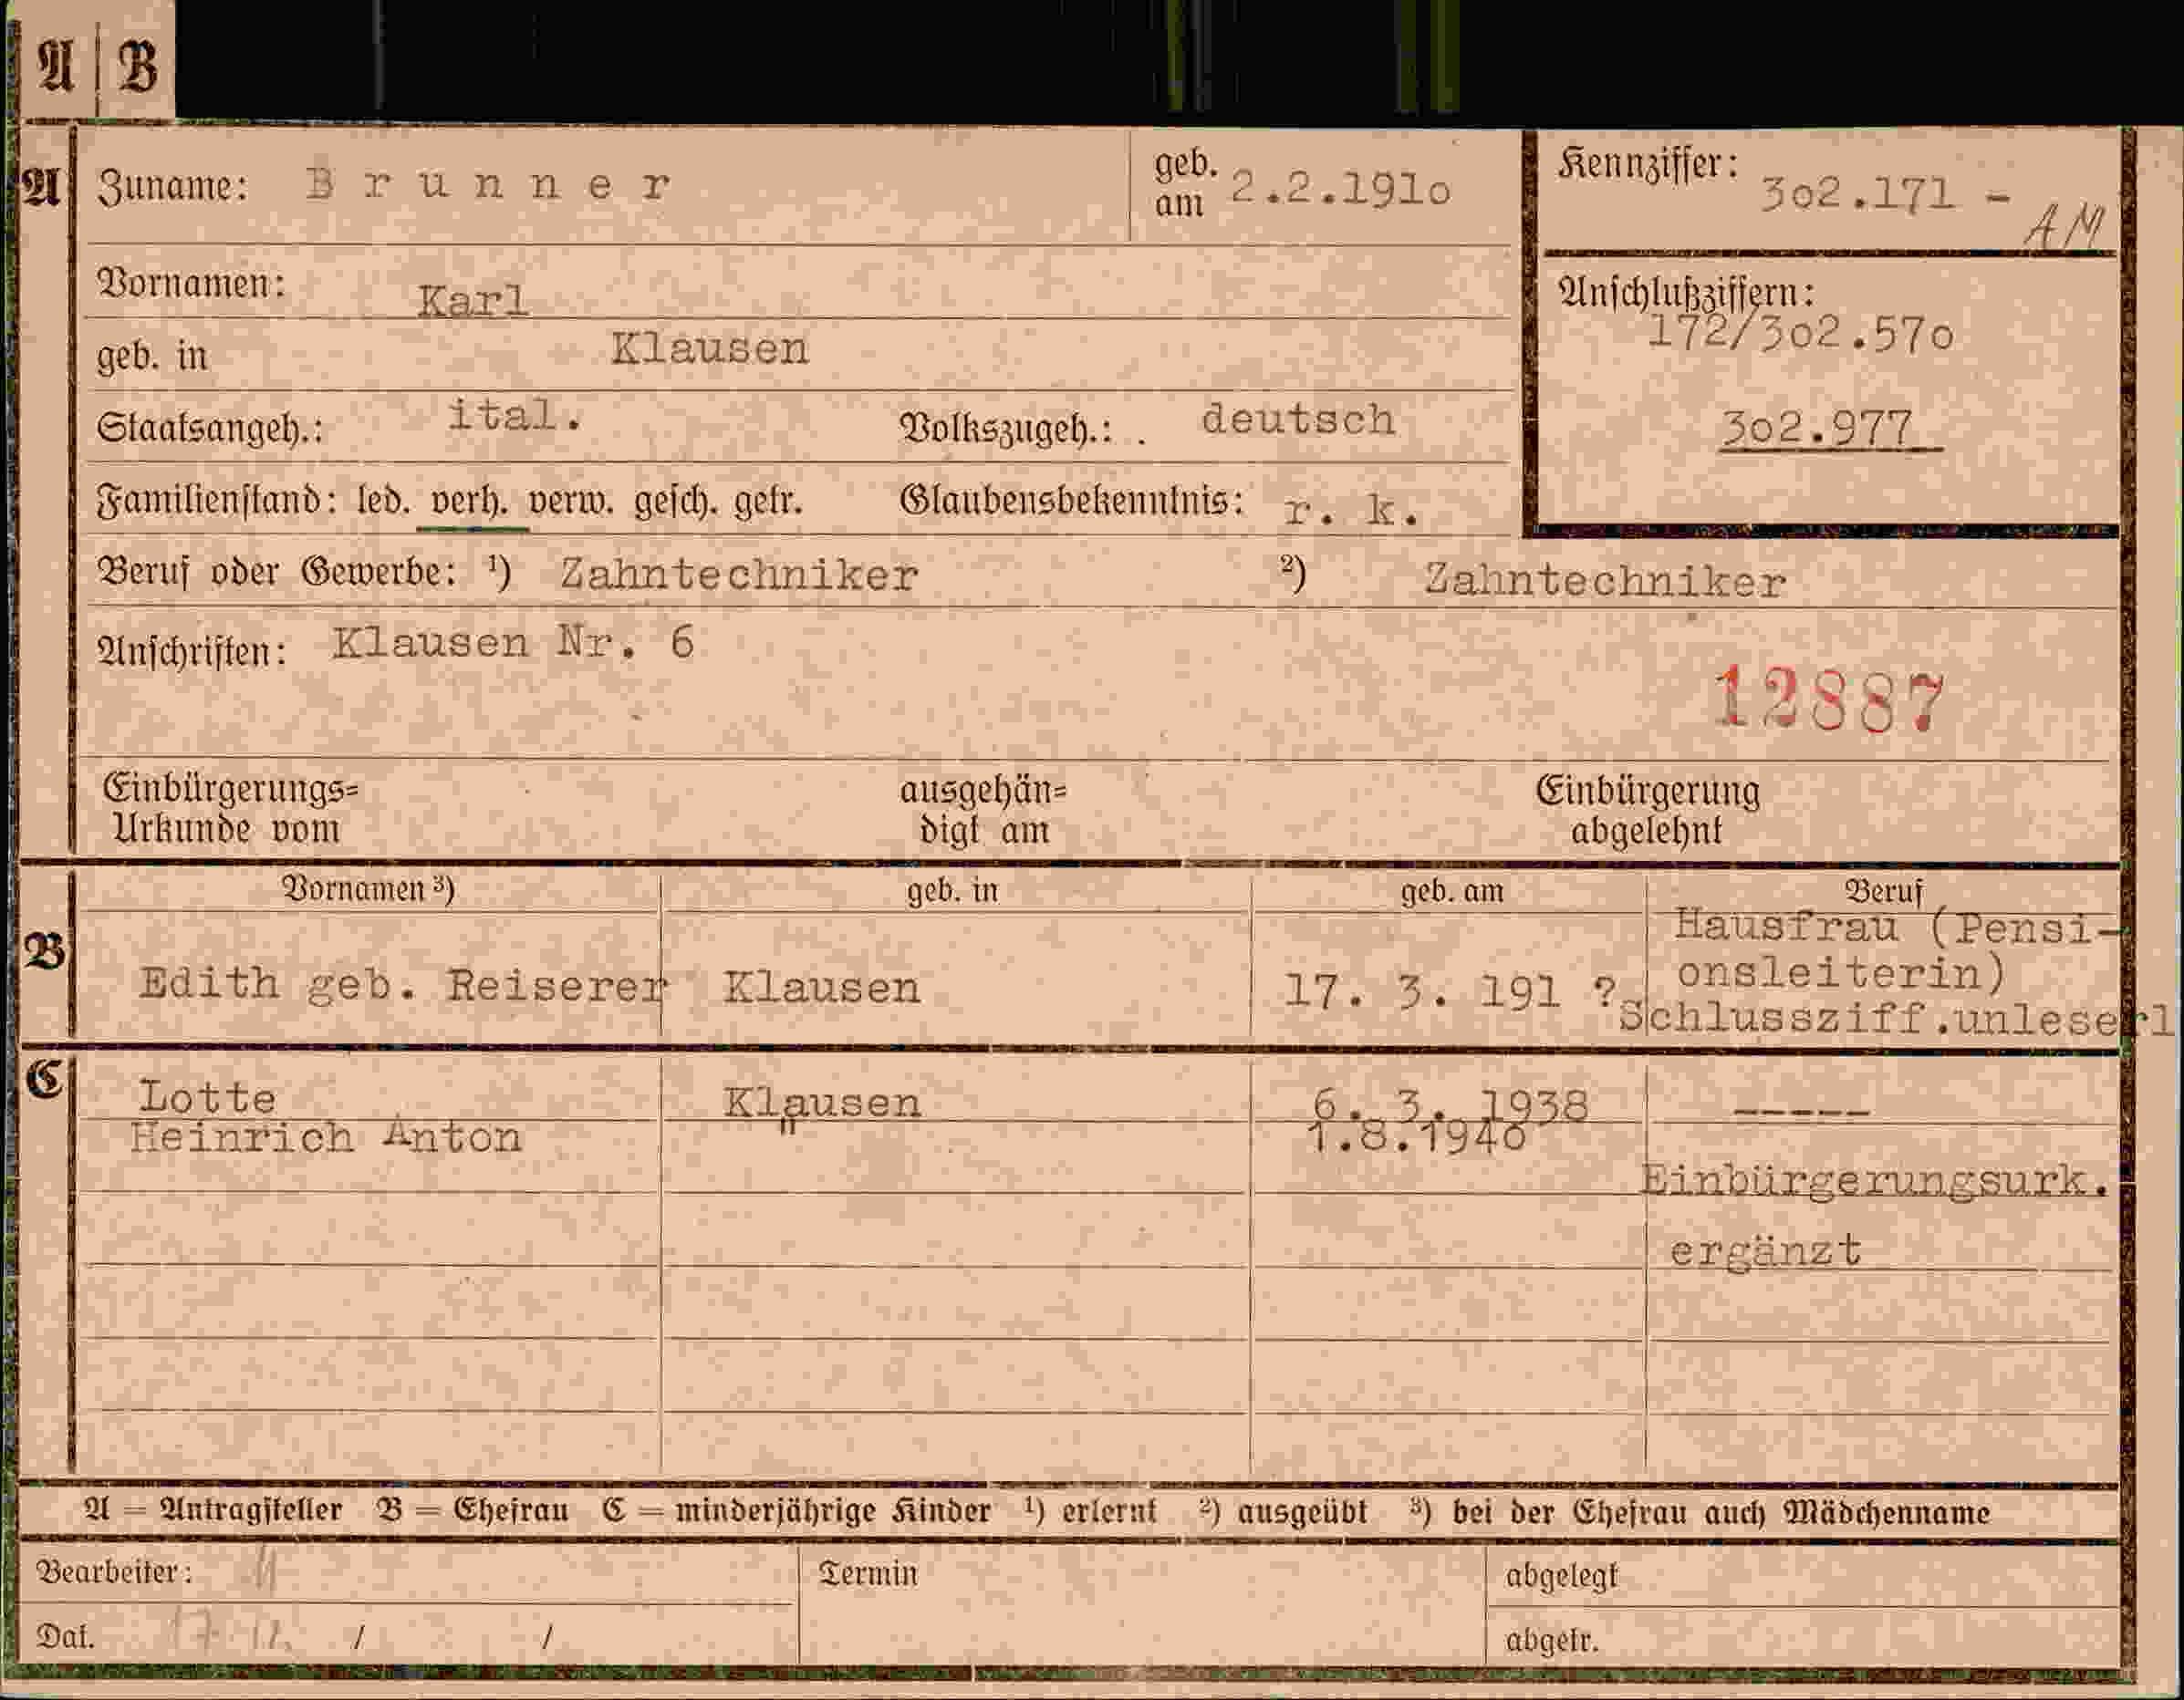 A | B
A Zuname: Brunner geb. am 2.2.1910 Kennziffer: 302.171 - AM
Vornamen: Karl Anschlußziffern: 172/302.570
geb. in Klausen
Staatsangeh.: ital. Volkszugeh.: . deutsch 302.977
Familienstand: led. verh. verw. gesch. getr. Glaubensbekenntnis: r. k.
Beruf oder Gewerbe: ¹) Zahntechniker ²) Zahntechniker
Anschriften: Klausen Nr. 6
12887
Einbürgerungs= ausgehän= Einbürgerung
Urkunde vom digt am abgelehnt
Vornamen ³) geb. in geb. am Beruf
B Edith geb. Reiserer Klausen 17. 3. 191 ? Hausfrau (Pensi-
onsleiterin)
Schlussziff.unleserl
C Lotte Klausen 6. 3. 1938 -----
Heinrich Anton " 1.8.1940
Einbürgerungsurk.
ergänzt
A = Antragsteller B = Ehefrau C = minderjährige Kinder ¹) erlernt ²) ausgeübt ³) bei der Ehefrau auch Mädchenname
Bearbeiter: Termin abgelegt
Dat. / / abgetr.